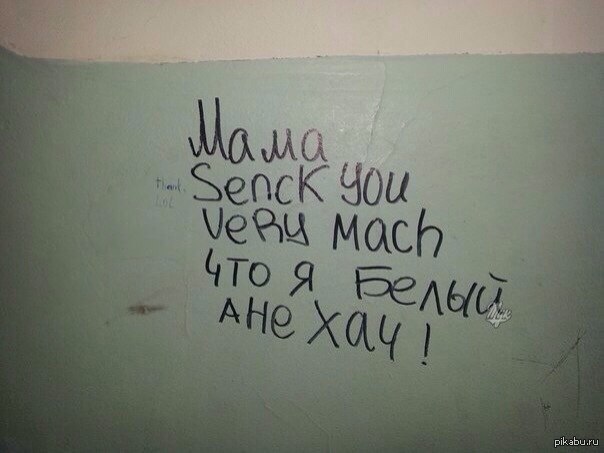 Мама
Senck you
very mach
что я Белый
ане хач!
thank.
LOL
pikabu.ru